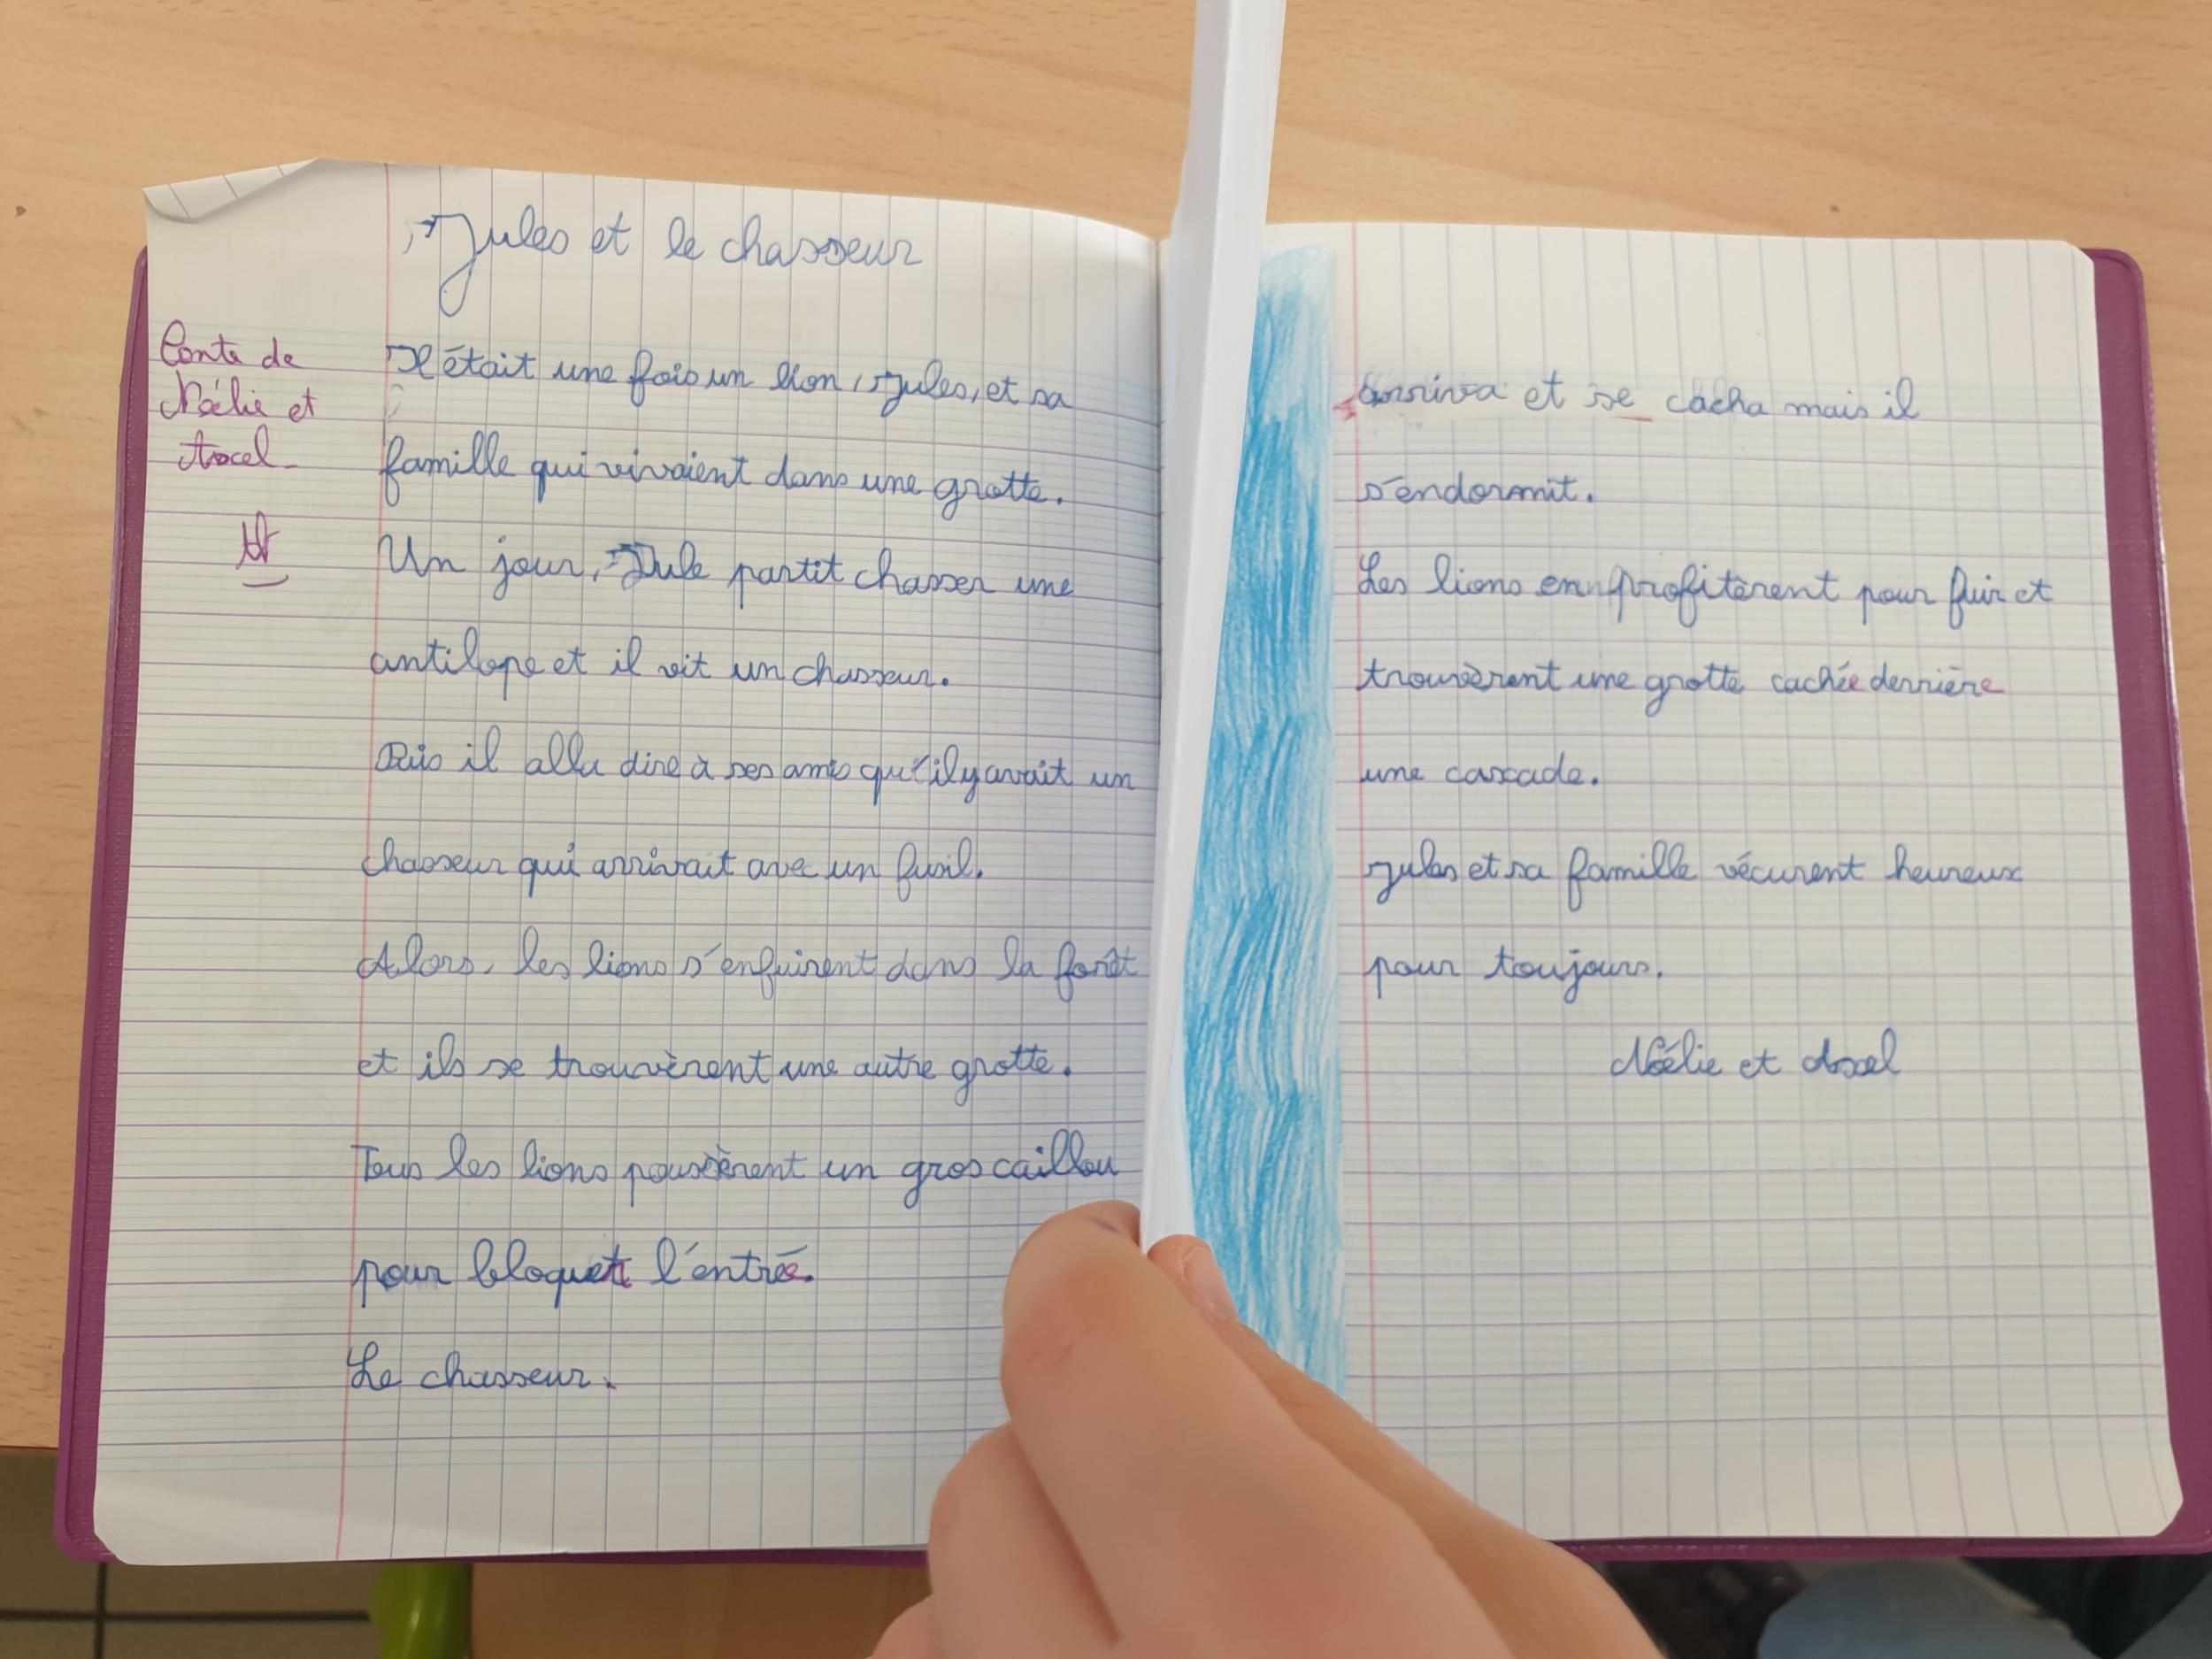 Jules et le chasseur
Conte de
Noélie et
Axel
Il était une fois un lion, Jules, et sa
famille qui vivaient dans une grotte.
Un jour, Jule partit chasser une
antilope et il vit un chasseur.
Puis il alla dire à ses amis qu'il y avait un
chasseur qui arrivait avec un fusil.
Alors, les lions s'enfuirent dans la forêt
et ils se trouvèrent une autre grotte.
Tous les lions poussèrent un gros caillou
pour bloquer l'entrée.
Le chasseur.
arriva et se cacha mais il
s'endormit.
Les lions en profitèrent pour fuir et
trouvèrent une grotte cachée derrière
une cascade.
Jules et sa famille vécurent heureux
pour toujours.
Noélie et Axel